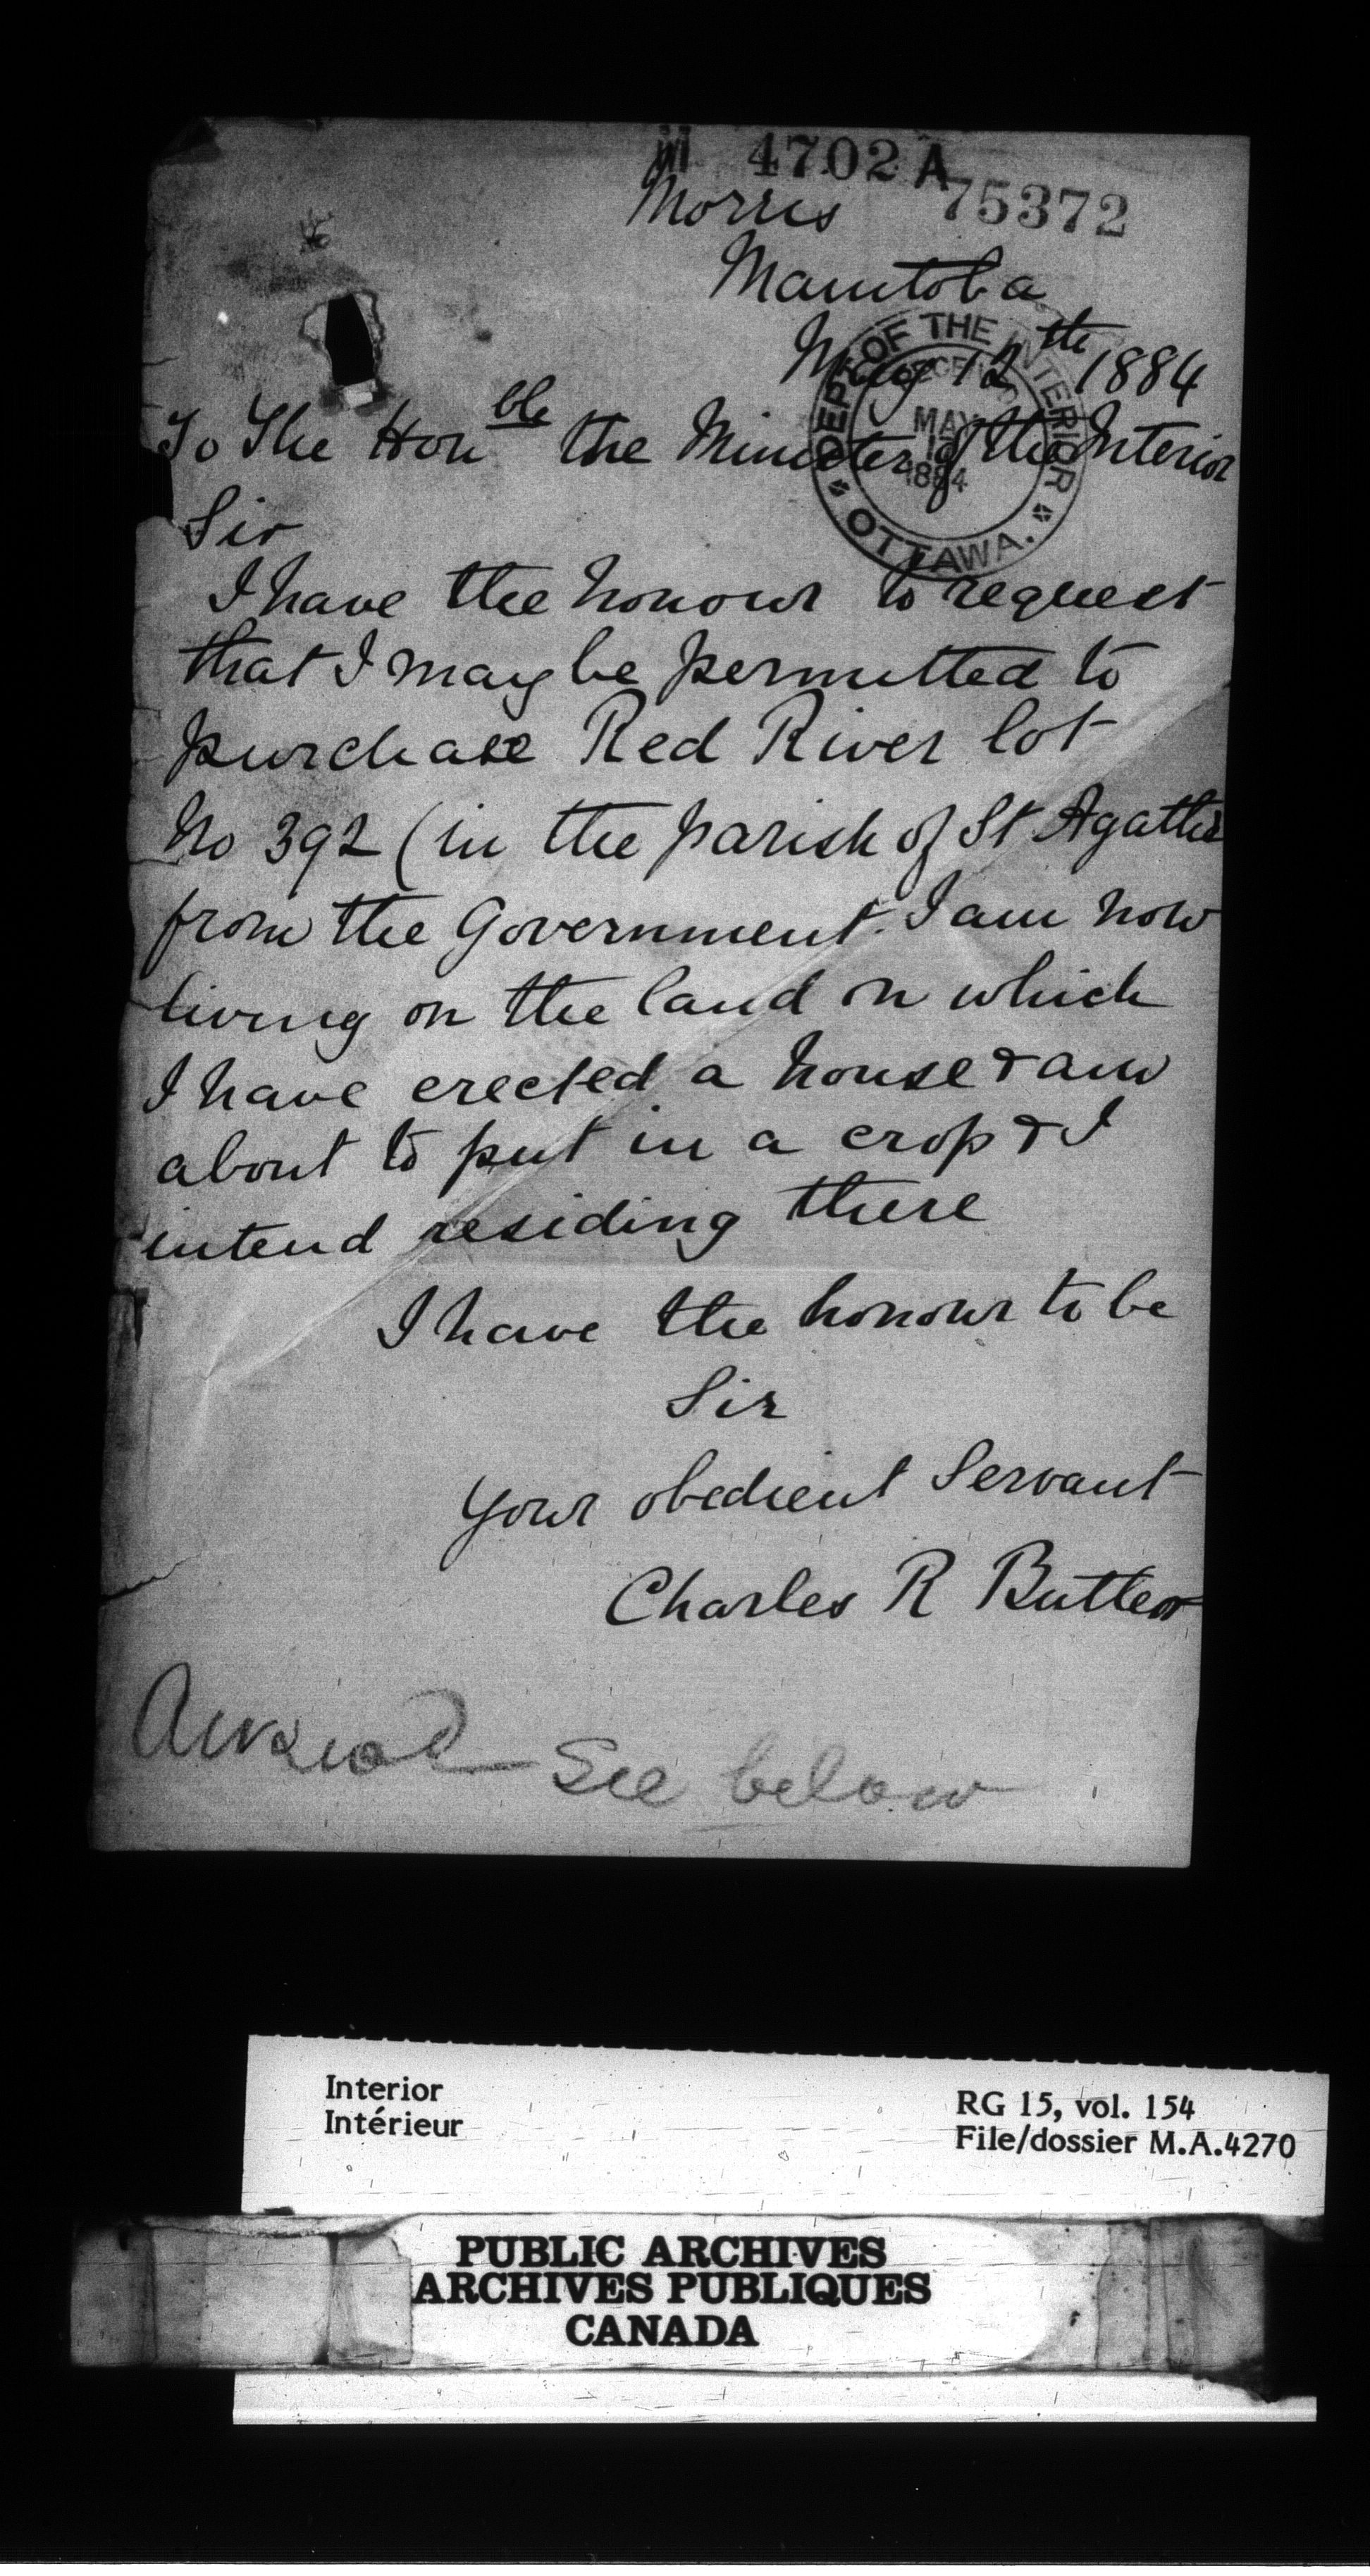 4702 A
75372
Morris
Manitoba
May 12th 1884
DEPT. OF THE INTERIOR
MAY
1884
OTTAWA.
To The Honble the Minister of the Interior
Sir
I have the honour to request
that I may be permitted to
purchase Red River lot
No 392 (in the parish of St Agathe
from the Government. I am now
living on the land on which
I have erected a house & am
about to put in a crop & I
intend residing there
I have the honour to be
Sir
Your obedient Servant
Charles R Butler
See below
Interior
Intérieur
RG 15, vol. 154
File/dossier M.A.4270
PUBLIC ARCHIVES
ARCHIVES PUBLIQUES
CANADA